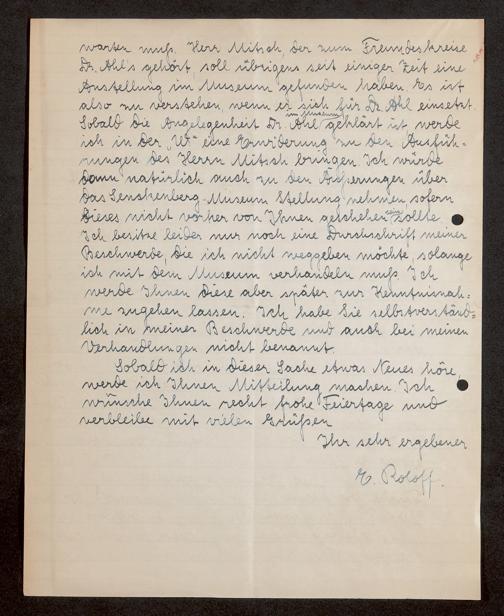 warten muß. Herr Mitsch, der zum Freundeskreise
Dr. Ahl's gehört, soll übrigens seit einiger Zeit eine
Anstellung im Museum gefunden haben. Es ist
also zu verstehen, wenn er sich für Dr. Ahl einsetzt.
im Museum
Sobald die Angelegenheit Dr. Ahl geklärt ist werde
ich in der „W" eine Erwiderung zu den Ausfüh-
rungen des Herrn Mitsch bringen. Ich würde
dann natürlich auch zu den Äußerungen über
das Senckenberg-Museum Stellung nehmen sofern
dieses nicht vorher von Ihnen geschehen sein sollte.
Ich besitze leider nur noch eine Durchschrift meiner
Beschwerde, die ich nicht weggeben möchte, solange
ich mit dem Museum verhandeln muß. Ich
werde Ihnen diese aber später zur Kenntnisnah-
me zugehen lassen. Ich habe Sie selbstverständ-
lich in meiner Beschwerde und auch bei meinen
Verhandlungen nicht benannt.
Sobald ich in dieser Sache etwas Neues höre,
werde ich Ihnen Mitteilung machen. Ich
wünsche Ihnen recht frohe Feiertage und
verbleibe mit vielen Grüßen
Ihr sehr ergebener
E. Roloff.